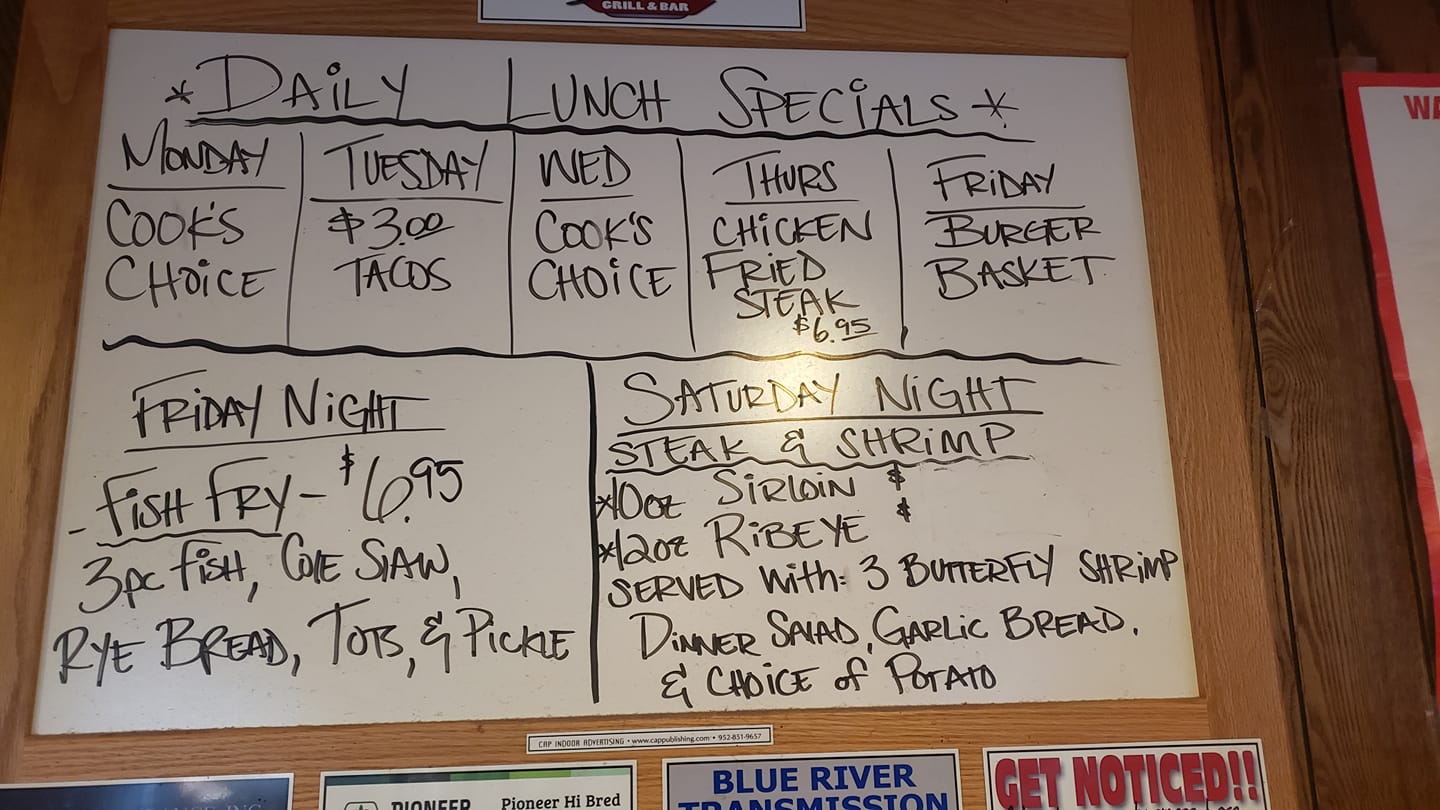 GRILL & BAR
* DAILY LUNCH SPECIALS *
MONDAY
COOK'S
CHOICE
TUESDAY
$3.00
TACOS
WED
COOK'S
CHOICE
THURS
CHICKEN
FRIED
STEAK
$6.95
FRIDAY
BURGER
BASKET
FRIDAY NIGHT
- FISH FRY - $6.95
3pc fISH, COLE SLAW,
RYE BREAD, TOTS, & PICKLE
SATURDAY NIGHT
STEAK & SHRIMP
*10oz SIRLOIN $
*12oz RIBEYE $
SERVED With: 3 BUTTERFLY SHRIMP
DINNER SALAD, GARLIC BREAD,
& CHOICE of POTATO
WA
CAP INDOOR ADVERTISING • www.cappublishing.com • 952-851-9657
PIONEER
Pioneer Hi Bred
BLUE RIVER
TRANSMISSION
GET NOTICED!!